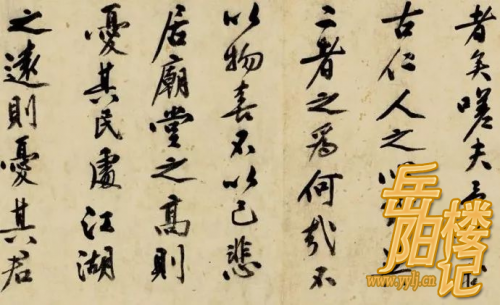 者矣嗟夫予
古仁人之
二者之為何哉不
以物喜不以己悲
居廟堂之高則
憂其民處江湖
之遠則憂其君
岳阳楼记
www.yylj.cn